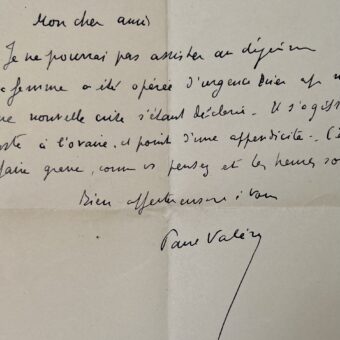 Mon cher ami
Je ne pourrai pas assister au déjeuner
femme a été opérée d'urgence hier ap
nouvelle crise s'étant déclarée. Il s'agiss
à l'ovaire, et point d'une appendicite. C'e
faire grave, comme vs pensez et les heures so
Bien affectueusement à vous
Paul Valéry